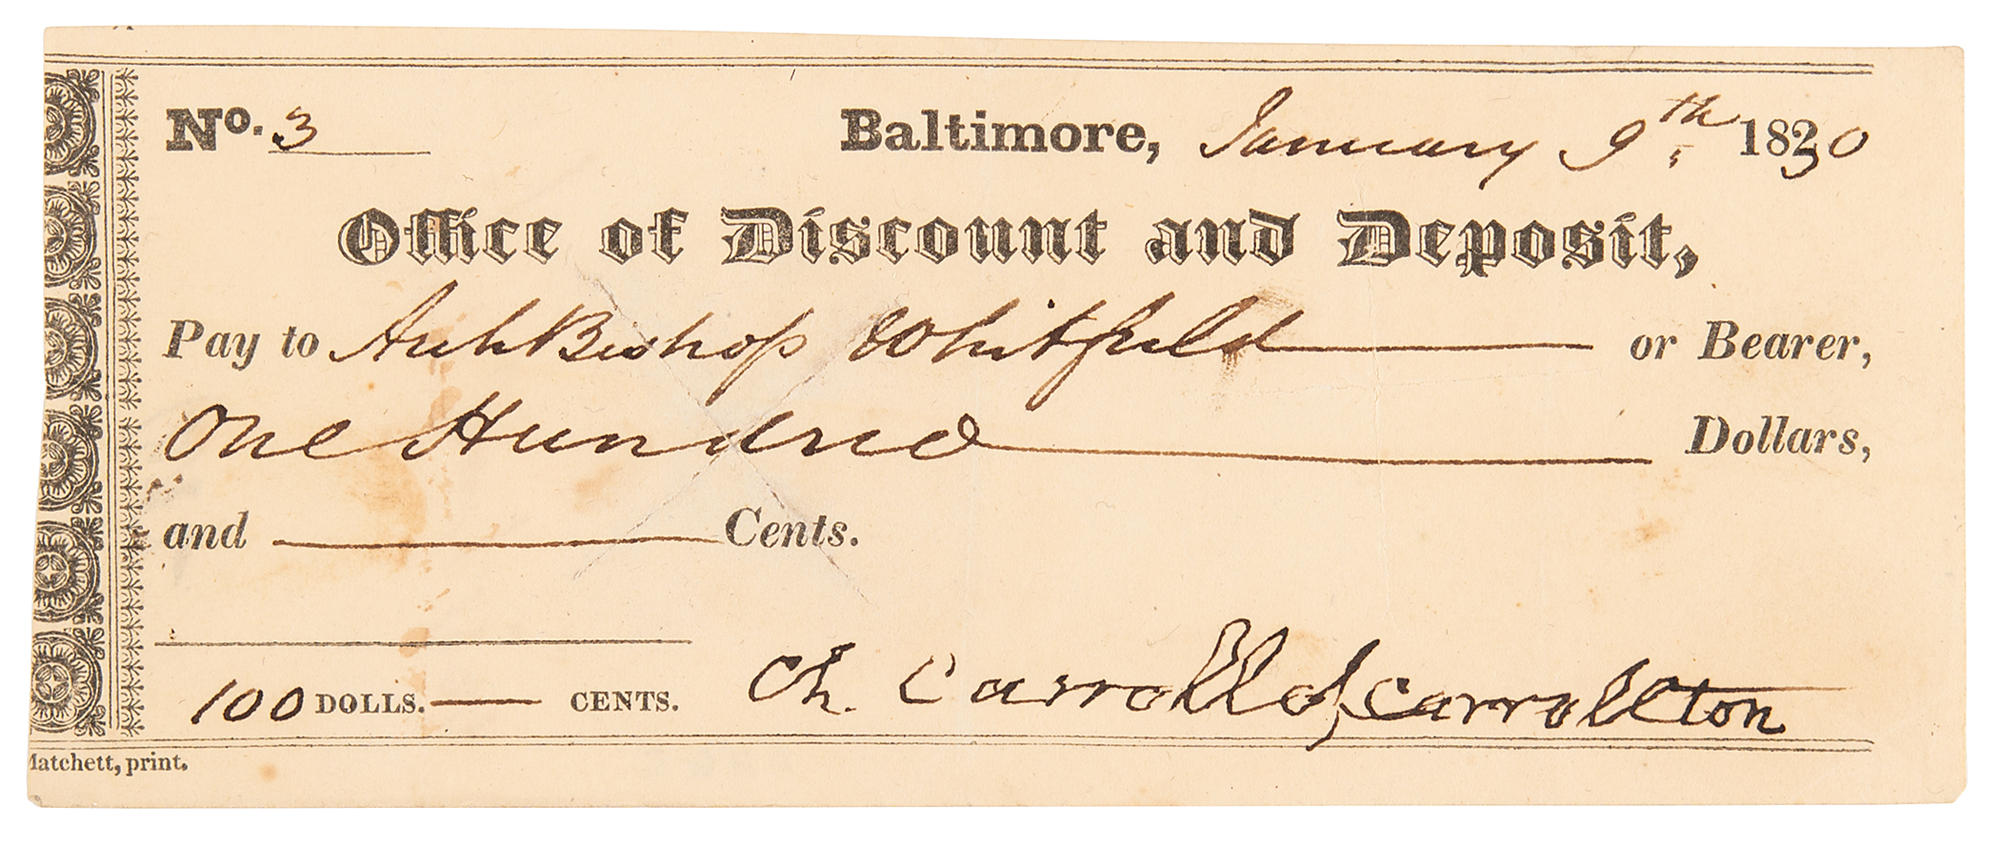 No. 3 Baltimore, January 9th 1830
Office of Discount and Deposit,
Pay to ArchBishop Whitfield or Bearer,
One Hundred Dollars,
and Cents.
100 DOLLS. CENTS. Ch. Carroll of Carrollton
Matchett, print.